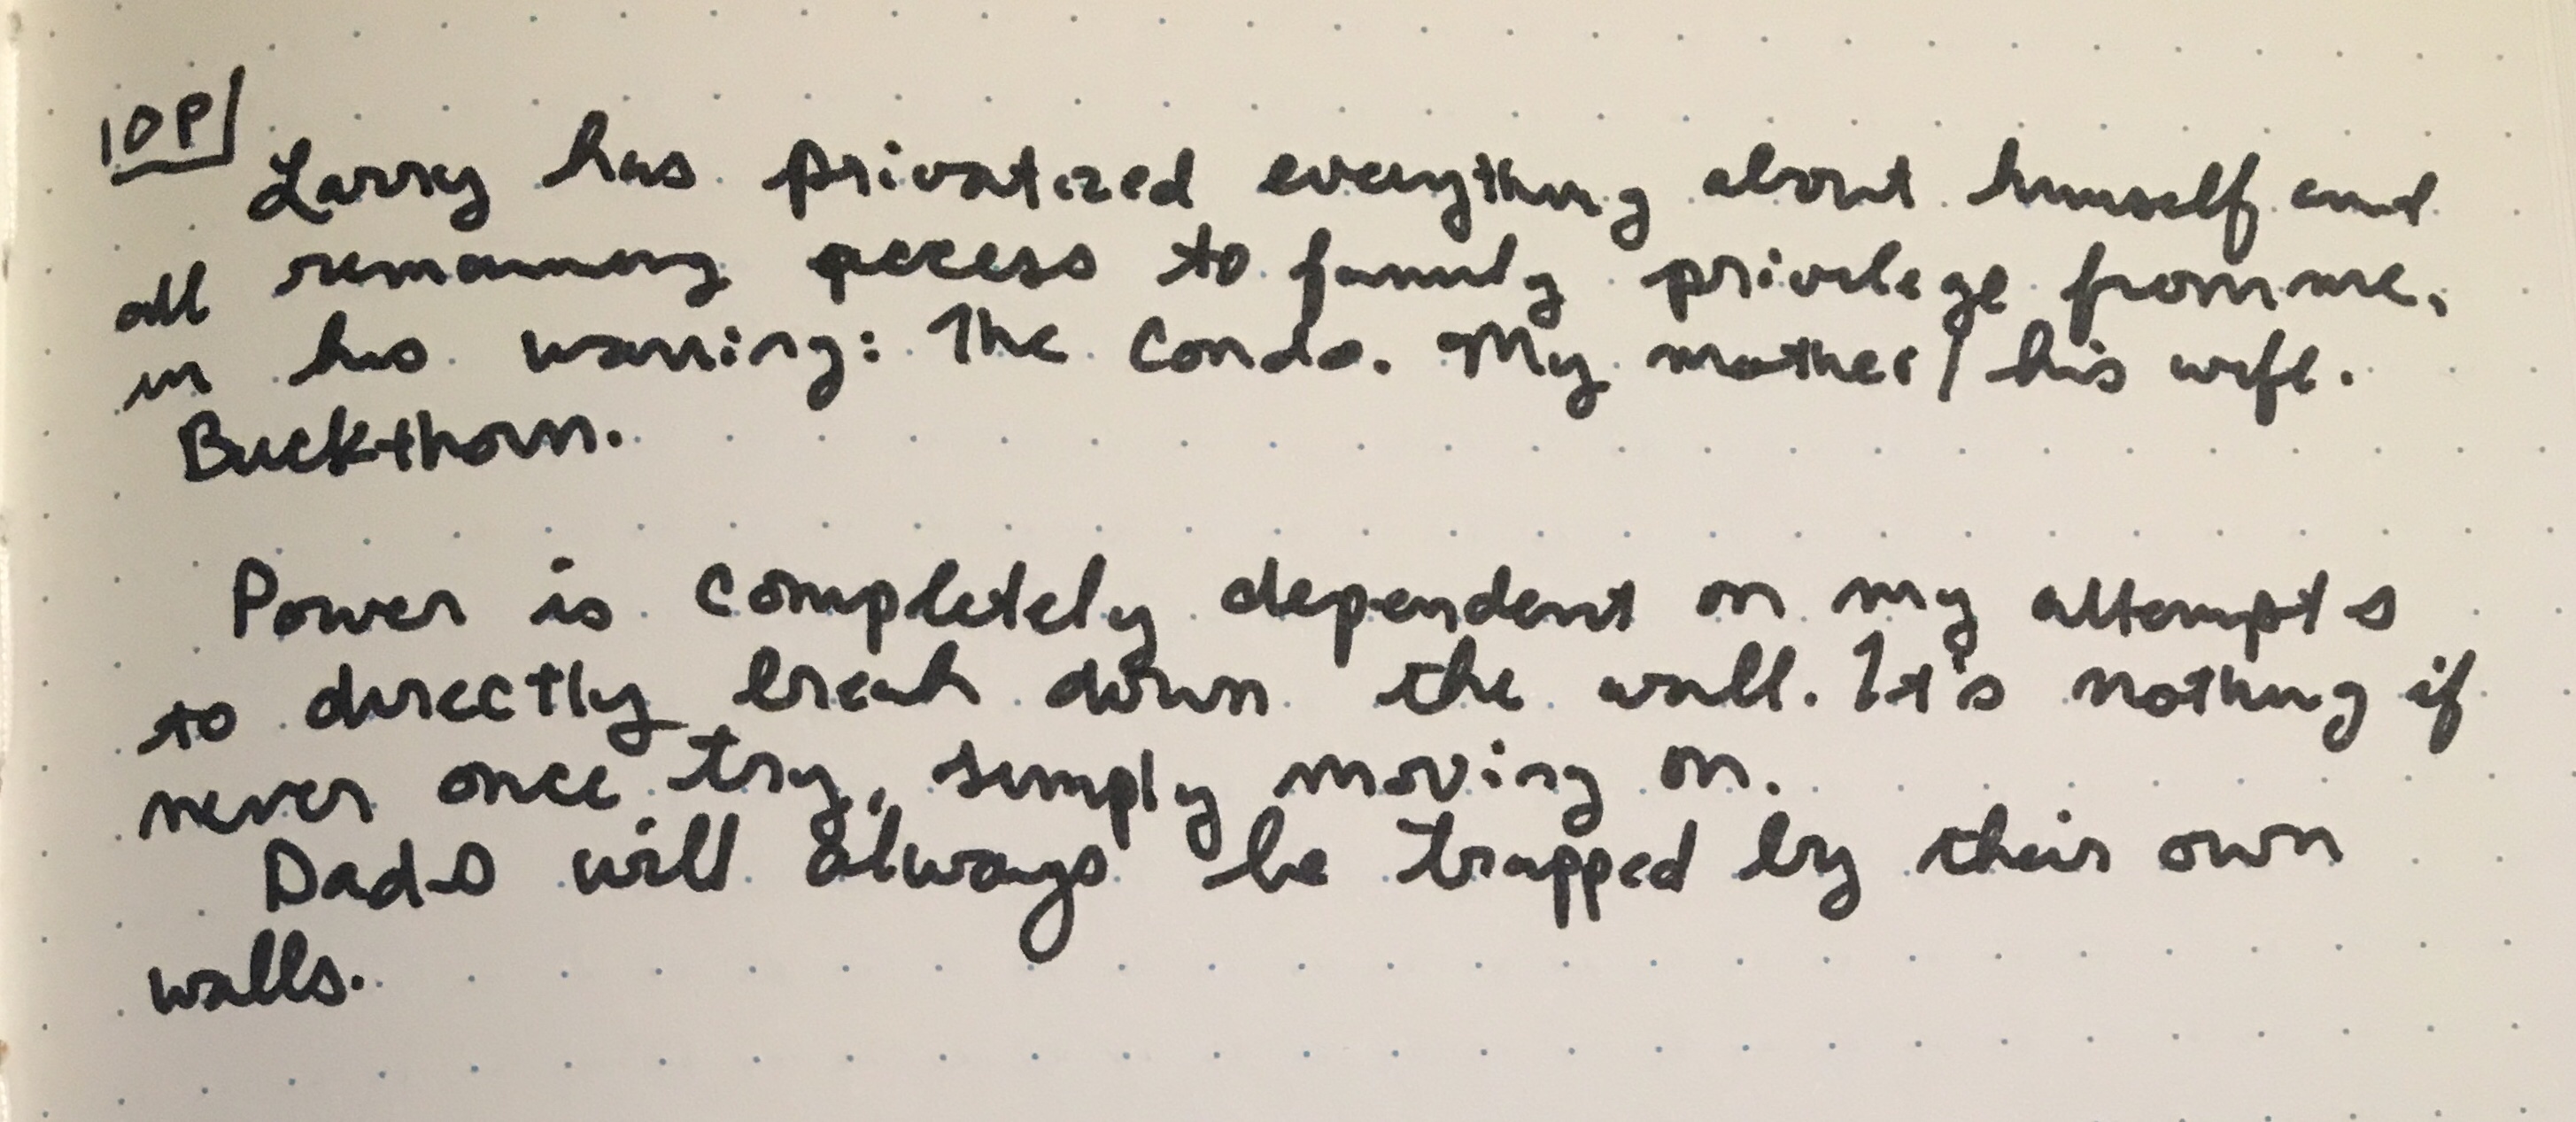 10P
Larry has privatized everything about himself and
all remaining access to family privilege from me.
in his warring: The Condo. My mother/his wife.
Buckthorn.
Power is completely dependent on my attempts
to directly break down the wall. It's nothing if
never once try, simply moving on.
Dads will always be trapped by their own
walls.